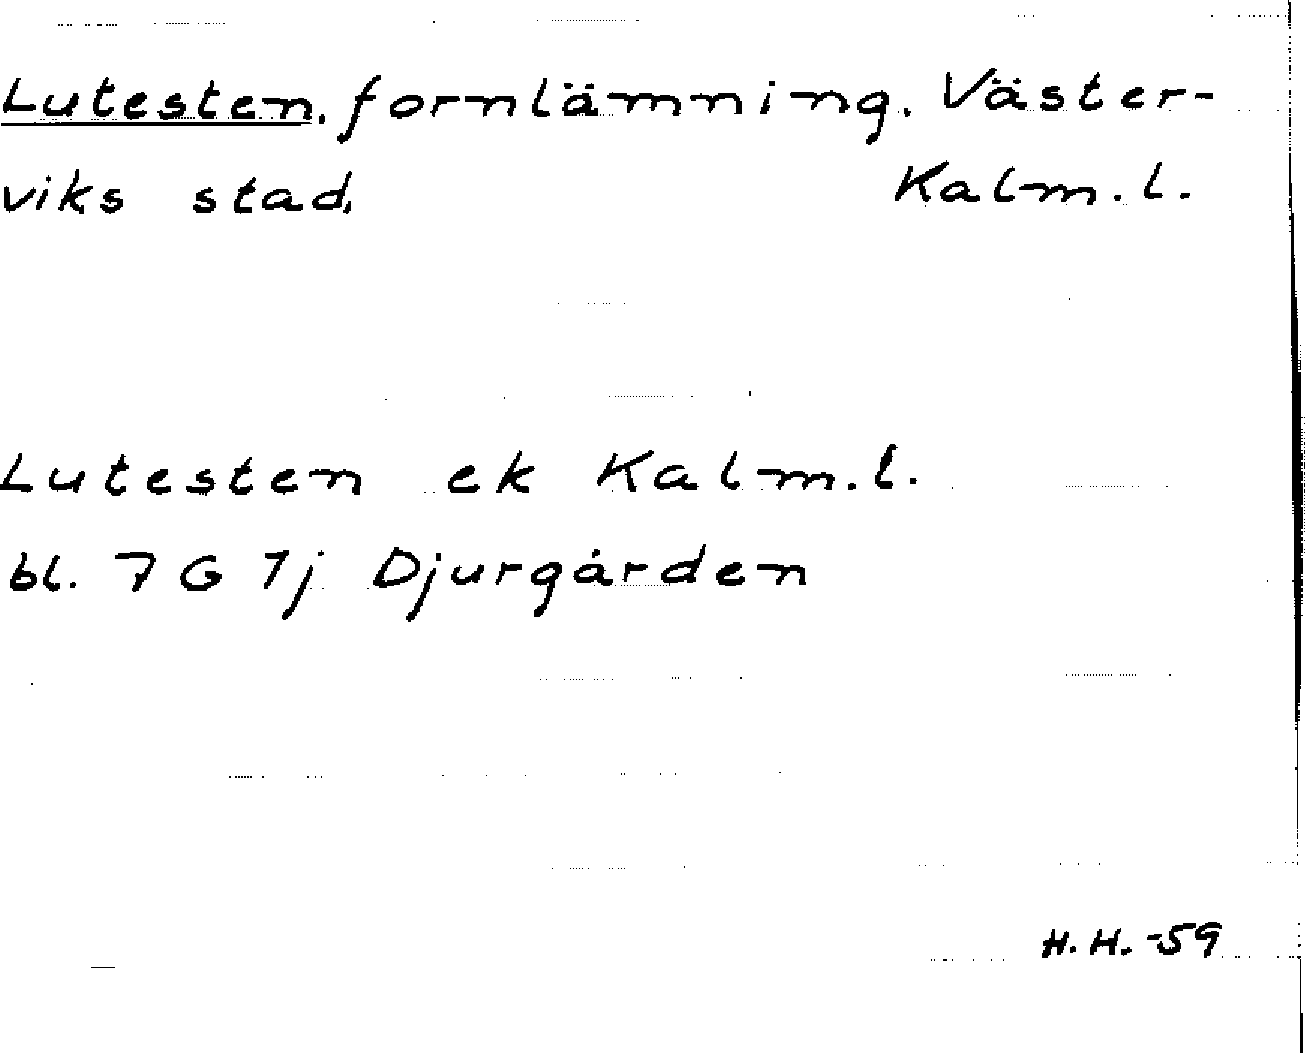 Lutesten, fornlämning, Väster-
viks stad, Kalm. l.
Lutesten ek Kalm. l.
bl. 7 G 1j Djurgården
H. H. -59